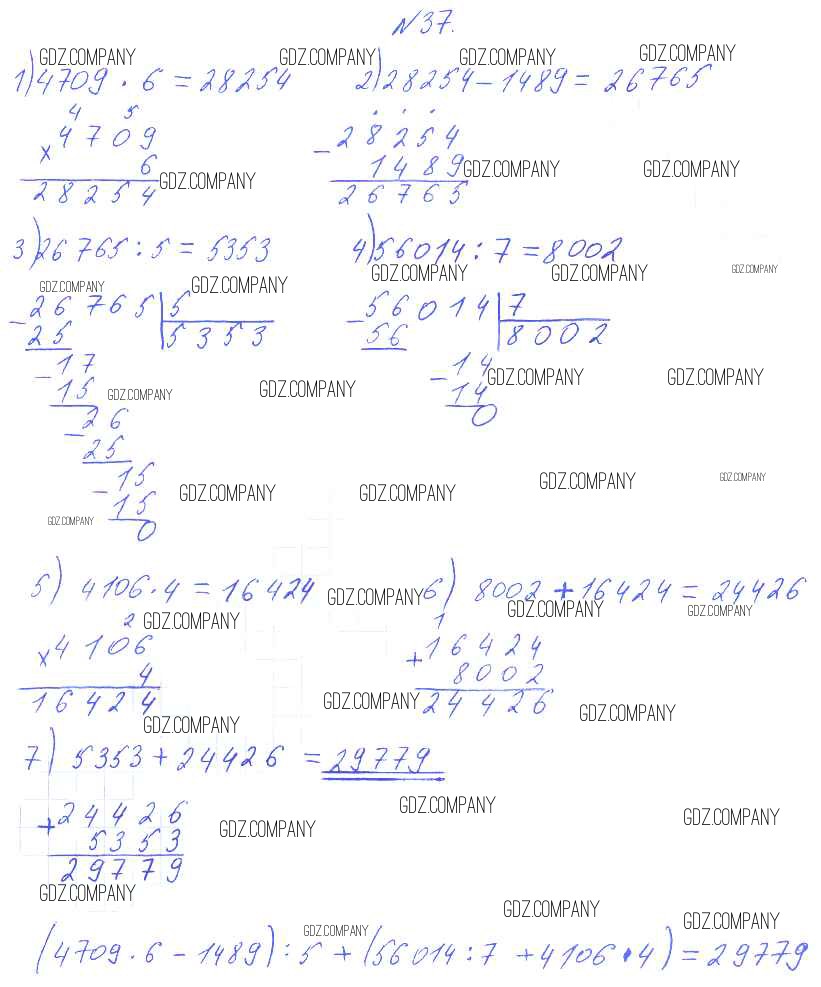 №37.
GDZ.COMPANY GDZ.COMPANY GDZ.COMPANY GDZ.COMPANY
1) 4709 · 6 = 28254 2) 28254 - 1489 = 26765
4 5 . . .
× 4709 - 28254
6 1489 GDZ.COMPANY GDZ.COMPANY
28254 GDZ.COMPANY 26765
3) 26765 : 5 = 5353 4) 56014 : 7 = 8002
GDZ.COMPANY GDZ.COMPANY GDZ.COMPANY GDZ.COMPANY GDZ.COMPANY
- 26765 | 5 - 56014 | 7
25 5353 56 8002
- 17 - 14 GDZ.COMPANY GDZ.COMPANY
15 GDZ.COMPANY GDZ.COMPANY 14
- 26 0
25
- 15 GDZ.COMPANY GDZ.COMPANY GDZ.COMPANY GDZ.COMPANY
15
GDZ.COMPANY 0
5) 4106 · 4 = 16424 GDZ.COMPANY 6) 8002 + 16424 = 24426
GDZ.COMPANY GDZ.COMPANY
2 GDZ.COMPANY 1
× 4106 + 16424
4 8002
16424 GDZ.COMPANY 24426 GDZ.COMPANY
GDZ.COMPANY
7) 5353 + 24426 = 29779
+ 24426 GDZ.COMPANY GDZ.COMPANY
5353 GDZ.COMPANY
29779
GDZ.COMPANY GDZ.COMPANY GDZ.COMPANY
GDZ.COMPANY
(4709 · 6 - 1489) : 5 + (56014 : 7 + 4106 · 4) = 29779